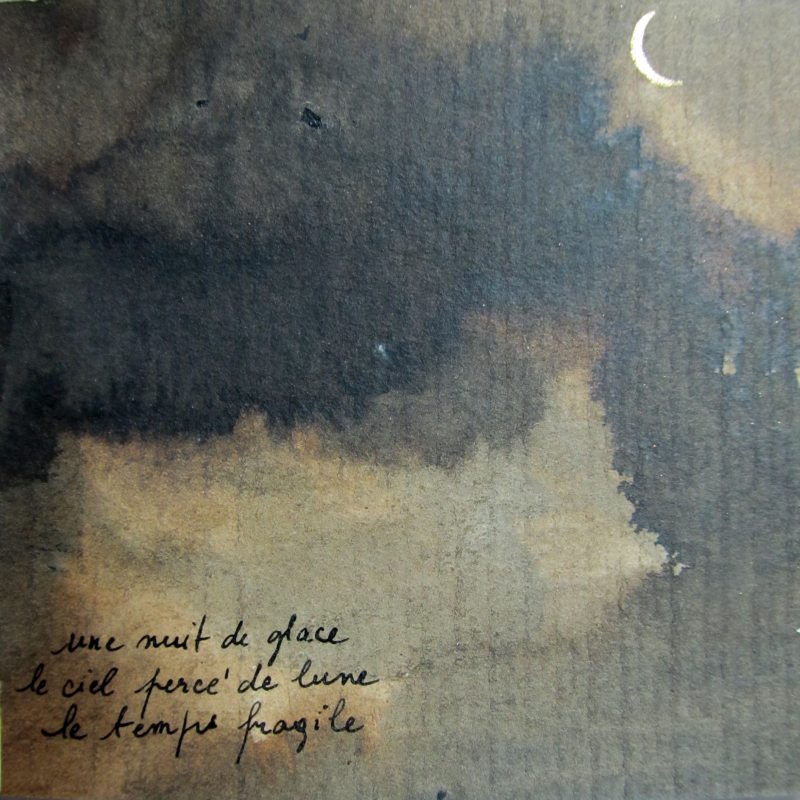 une nuit de glace
le ciel percé de lune
le temps fragile